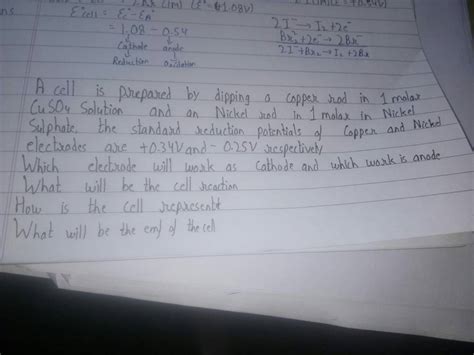 ans E°cell = Ec - EA
= 1.08 - 0.54
Cathode anode
Reduction Oxidation
2I⁻ → I₂ + 2e⁻
Br₂ + 2e⁻ → 2Br⁻
2I⁻ + Br₂ → I₂ + 2Br
A cell is prepared by dipping a copper rod in 1 molar
CuSO₄ Solution and an Nickel rod in 1 molar in Nickel
Sulphate, the standard reduction potentials of Copper and Nickel
electrodes are +0.34V and - 0.25V respectively
Which electrode will work as Cathode and which work is anode
What will be the cell reaction
How is the cell represent
What will be the emf of the cell